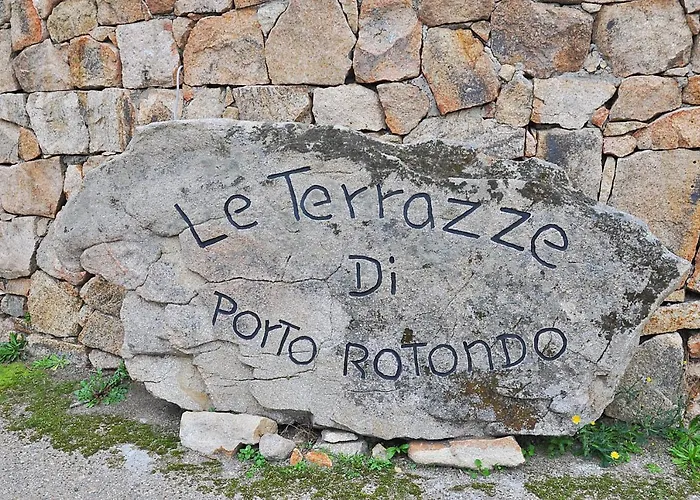 Le Terrazze
Di
PORTO ROTONDO